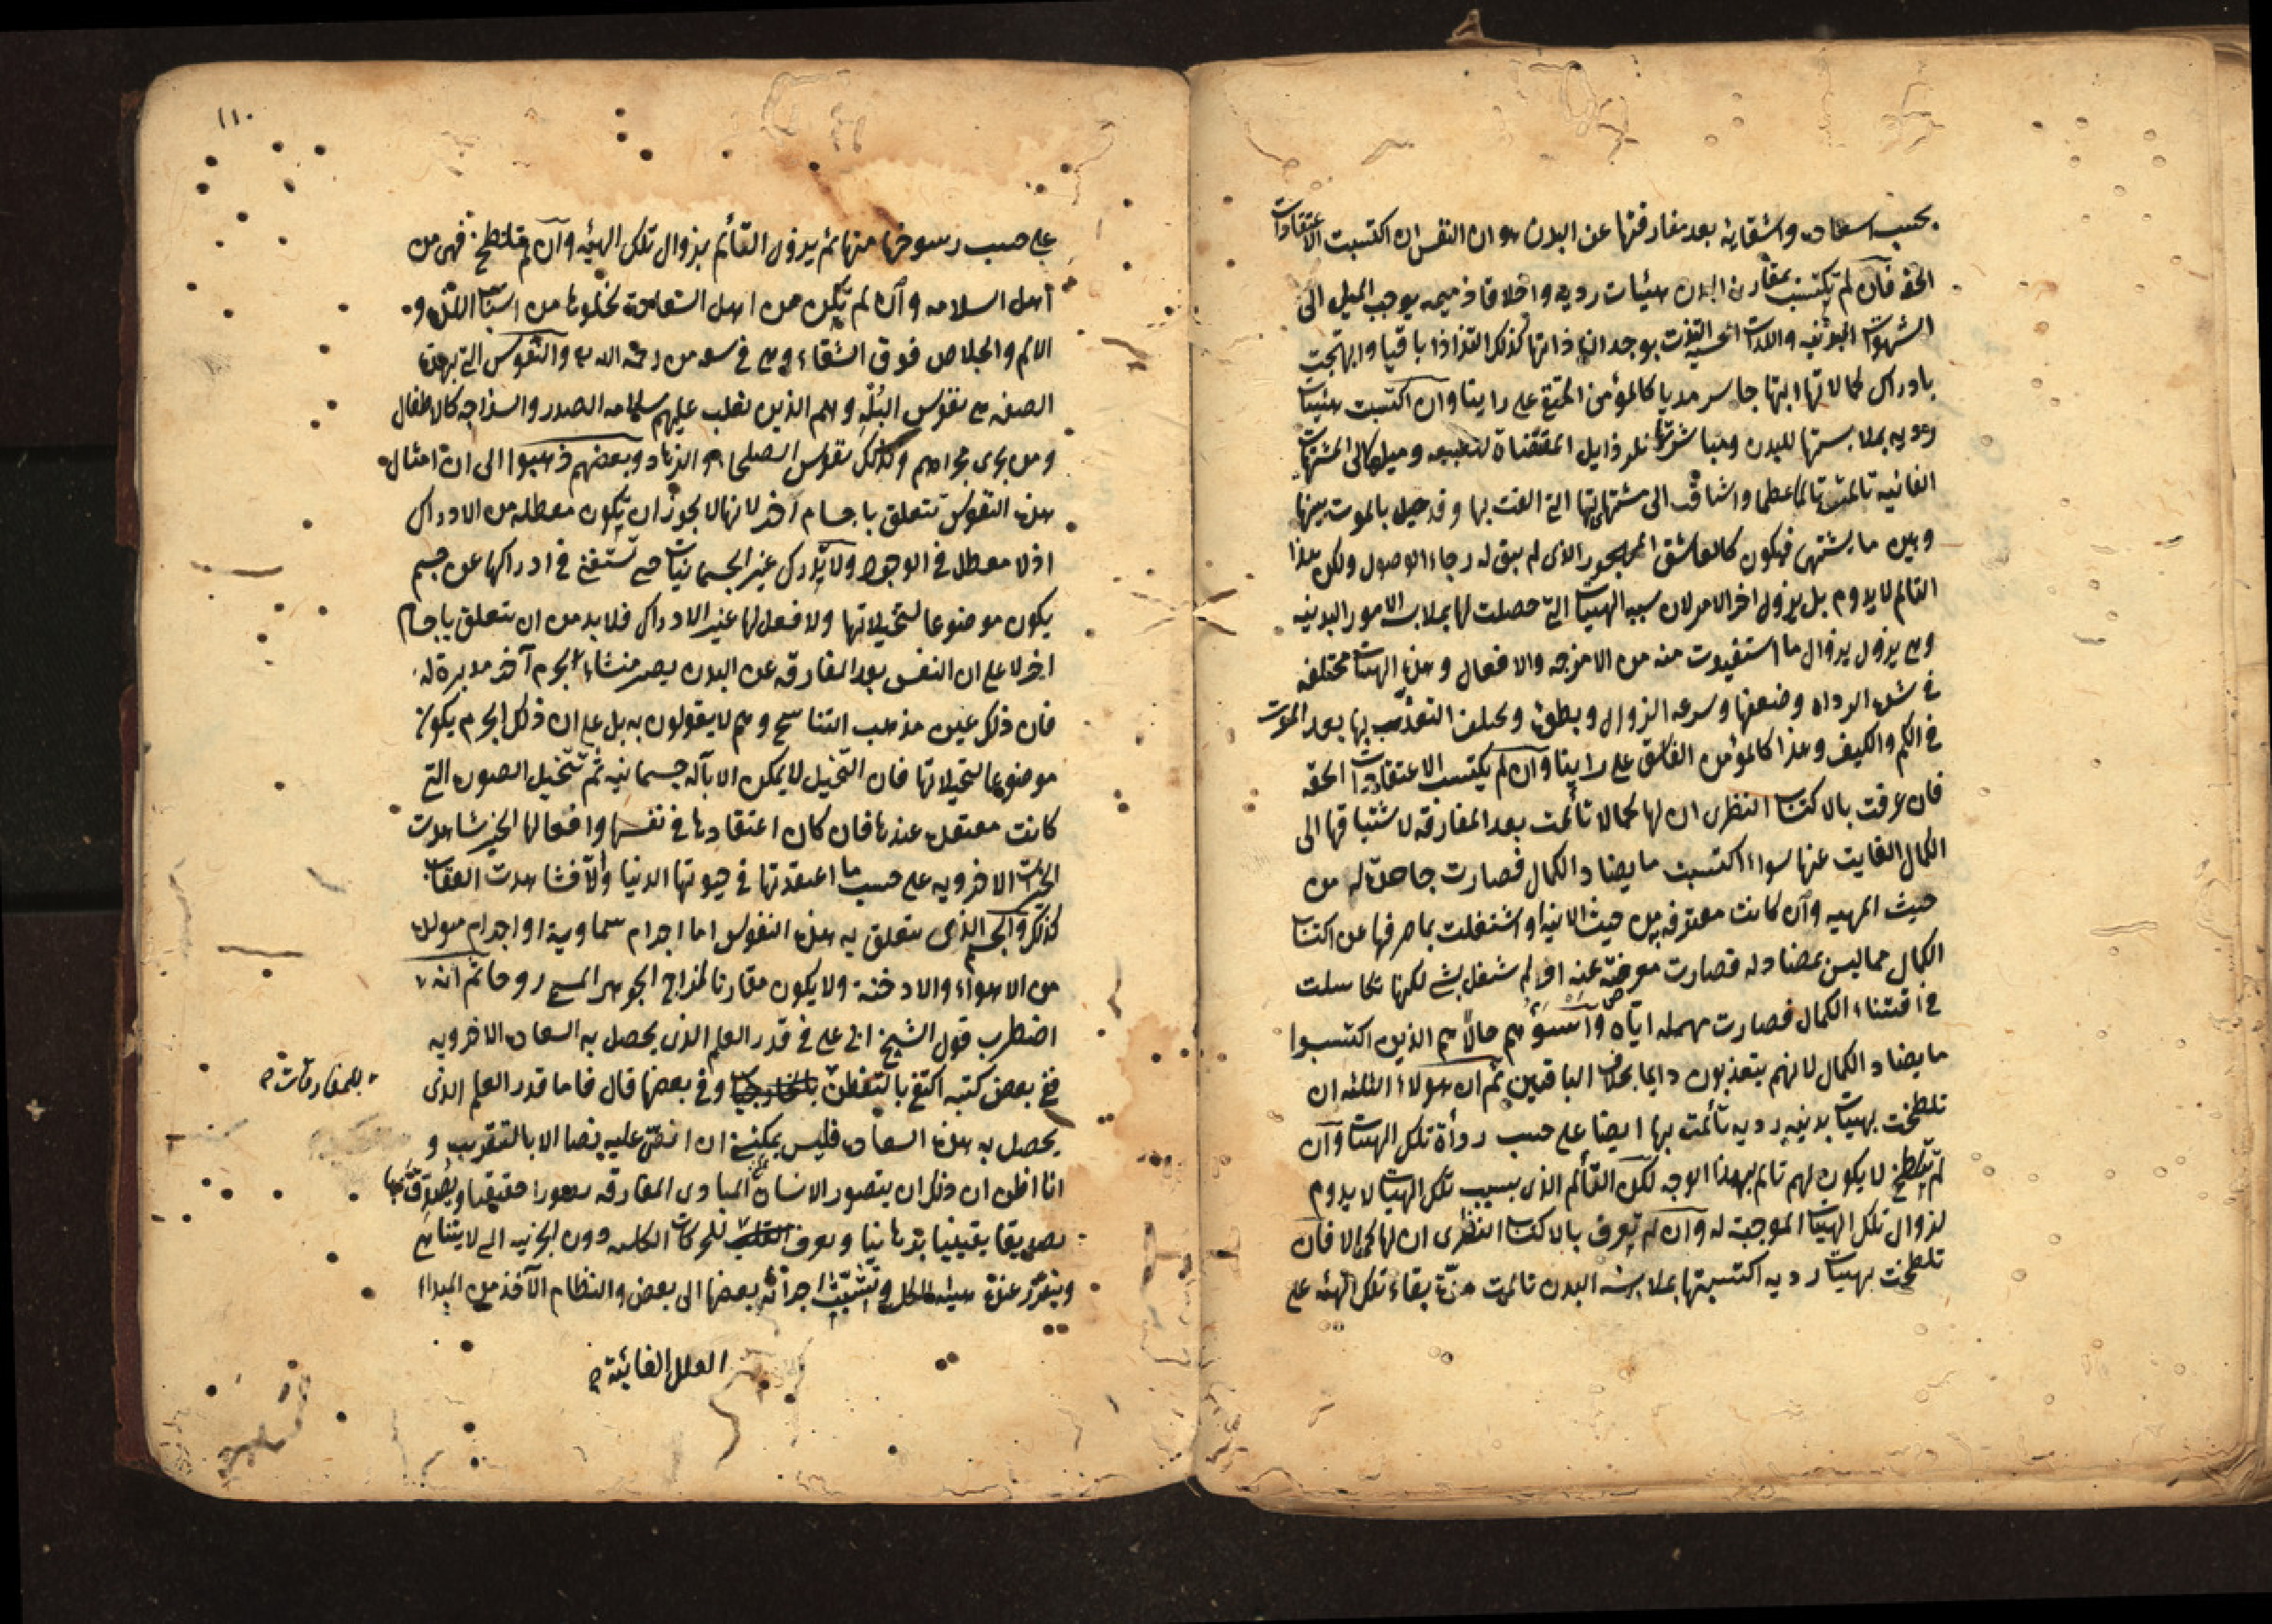 بحسب سعادة وشقاوة بعد مفارقتها عن البدن هو ان النفس ان اكتسبت الاعتقادات
الحقه فان لم تكتسب بمقارنة البدن هيئات رديه واخلاقا ذميمه يوجب الميل الى
الشهوات البدنيه واللذات الحسيه التذت بوجدان ذاتها كذلك التذاذا باقيا وابتهجت
بادراك كمالاتها ابتهاجا سرمديا كالمؤمن المتقي على راينا وان اكتسبت هيئات
رديه بملابستها للبدن ومباشرتها للرذايل المقتضاة لطبيعه وميلها الى المشتهيات
الفانيه تالمت تالما عظيما واشتاقت الى مشتهياتها التي الفت بها وقد حيل بالموت بينها
وبين ما يشتهى فيكون كالعاشق المهجور الذى لم يبق له رجاء الوصول ولكن هذا
التالم لا يدوم بل يزول اخر الامر لان سببه الهيئات التي حصلت لها بملابسة الامور البدنيه
وهي يزول بزوال ما استفيدت منه من الامزجه والافعال وهذه الهيئات مختلفه
في شدة الرداه وضعفها وسرعه الزوال وبطئه ويختلف التعذب بها بعد الموت
في الكم والكيف وهذا كالمؤمن الفاسق على راينا وان لم يكتسب الاعتقادات الحقه
فان عرفت بالاكتساب النظرى ان لها كمالا تألمت بعد المفارقه لاشتياقها الى
الكمال الفايت عنها سواء اكتسبت ما يضاد الكمال فصارت جاحدة له من
حيث المهيه وان كانت معترفه به من حيث الانيه او اشتغلت بما صرفها عن اكتساب
الكمال مما ليس بمضاد له فصارت معرضة عنه او لم تشغل بشي لكنها تكاسلت
في اقتناء الكمال فصارت مهمله اياه واسوئهم حالا هم الذين اكتسبوا
ما يضاد الكمال لانهم يتعذبون دايما بخلاف الباقيين ثم ان هولاء الثلثه ان
تلطخت بهيئات بدنيه رديه تألمت بها ايضا على حسب رداءة تلك الهيئات وان
لم يتلطخ لا يكون لهم تالم بهذا الوجه لكن التألم الذى بسبب تلك الهيئات لا يدوم
لزوال تلك الهيئات الموجبة له وان لم يعرف بالاكتساب النظرى ان لها كمالا فان
تلطخت بهيئات رديه اكتسبتها بملابسة البدن تالمت مدة بقاء تلك الهيئه على
١١٠
على حسب رسوخها منها ثم يزول التألم بزوال تلك الهيئه وان لم تتلطخ فهى من
اهل السلامه وان لم يكن من اهل السعادة لخلوها من اسباب اللذه و
الالم والخلاص فوق الشقاء وهي في سعه من رحمة الله والنفوس التي بهذه
الصفه هي نفوس البله وهم الذين تغلب عليهم سلامه الصدور والسذاجه كالاطفال
ومن يجرى مجراهم وكذلك نفوس الصلحاء والزهاد وبعضهم ذهبوا الى ان امثال
هذه النفوس تتعلق باجسام اخر لانها لا يجوز ان يكون معطله من الادراك
اذ لا معطل في الوجود ولا يدرك غير الجسمانيات حتى تستغني في ادراكها عن جسم
يكون موضوعا لتخيلاتها ولا فعل لها غير الادراك فلا بد من ان يتعلق باجسام
اخر لا على ان النفس بعد المفارقه عن البدن يصير منشاء لجرم آخر مدبرة له
فان ذلك عين مذهب التناسخ وهم لا يقولون به بل على ان ذلك الجرم يكون
موضوعا لتخيلاتها فان التخيل لا يمكن الا بآله جسمانيه ثم تتخيل الصور التي
كانت معتقده عندها فان كان اعتقادها في نفسها وافعالها الخير شاهدت
الخيرات الاخرويه على حسب ما اعتقدتها في حيوتها الدنيا والا فشاهدت العقاب
كذلك والجسم الذى يتعلق به هذه النفوس اما اجرام سماوية او اجرام متولدة
من الاهواء والادخنة ولا يكون مقارنا لمزاج الجوهر المسمى روحا ثم انه
اضطرب قول الشيخ ابى علي في قدر العلم الذى يحصل به السعادة الاخرويه
ففي بعض كتبه اكتفى بالتفطن للمفارقات وفي بعضها قال فاما قدر العلم الذى
يحصل به هذه السعادة فليس يمكنني ان انص عليه نصا الا بالتقريب و
انا اظن ان ذلك ان يتصور الانسان المبادى المفارقه تصورا حقيقيا ويصدق بها
تصديقا يقينيا برهانيا ويعرف العلل للحركات الكليه دون الجزئيه التي لا يتناهى
ويتقرر عنده هيئه الكل ونسبة اجزائه بعضها الى بعض والنظام الآخذ من المبداء
العلل الغائية